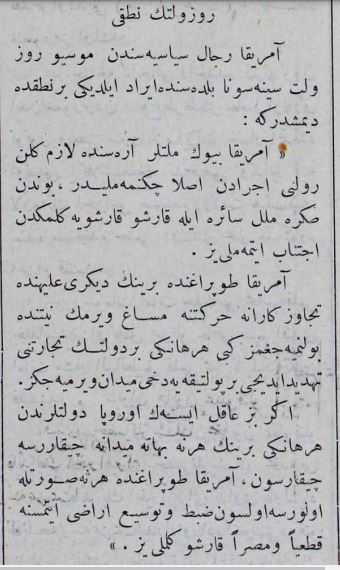 روزولتك نطقى
آمريقا رجال سياسيه‌سندن موسيو روز
ولت سينه‌سوتا بلده‌سنده ايراد ايلديكى بر نطقده
ديمشدركه :
« آمريقا بيوك ملتلر آره‌سنده لازم كلن
رولنى اجرادن اصلا چكنمه‌ميلدر ، بوندن
صكره ملل سائره ايله قارشو قارشويه كلمكدن
اجتناب ايتمه‌ملى‌يز .
آمريقا طوپراغنده برينك ديكرى عليهنده
تجاوزكارانه حركتنه مساغ ويرمك نيتنده
بولنميه‌جغمز كبى هرهانكى بردولتك تجارتنى
تهديد ايديجى بر پولتيقه‌يه دخى ميدان ويرميه‌جكز.
اكر بز عاقل ايسه‌ك اوروپا دولتلرندن
هرهانكى برينك هرنه بهانه ميدانه چيقاررسه
چيقارسون ، آمريقا طوپراغنده هرنه‌صورتله
اولورسه‌اولسون ضبط وتوسيع اراضى ايتمسنه
قطعياً ومصراً قارشو كلملى‌يز . »